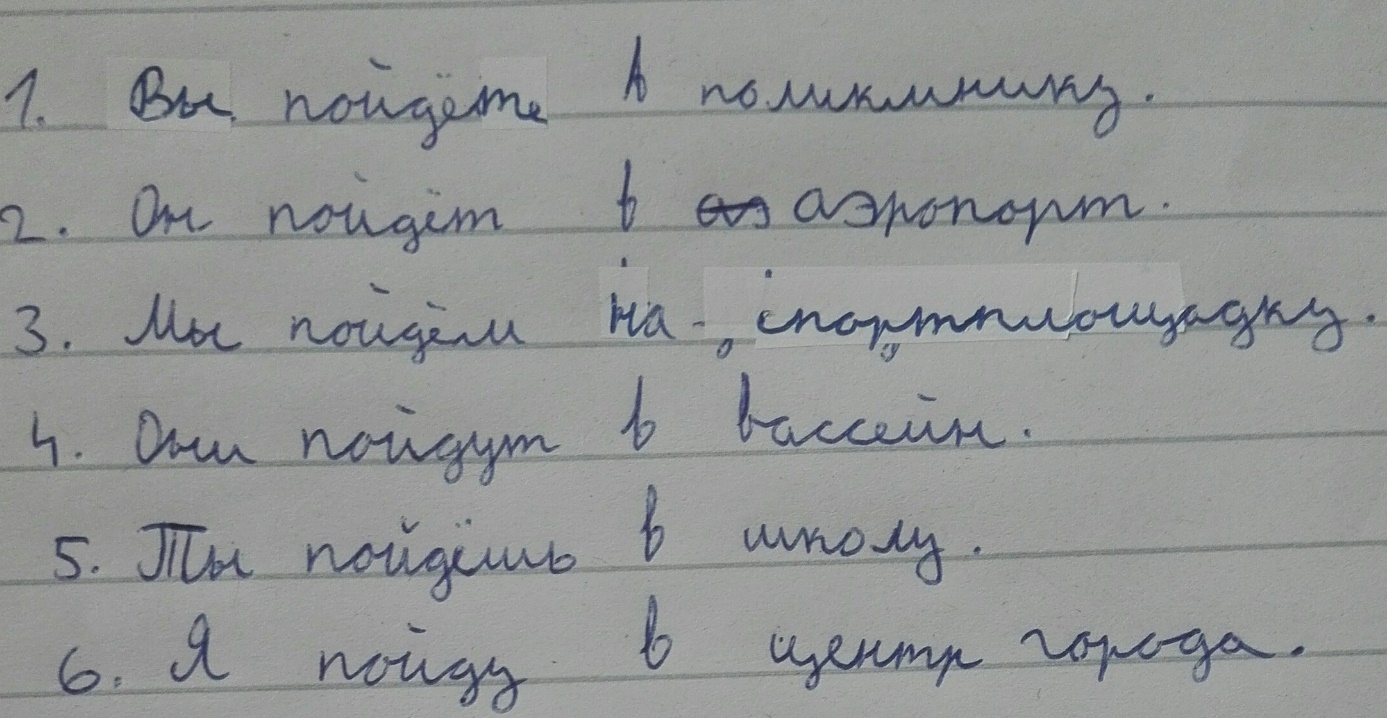 1. Вы пойдёте в поликлинику.
2. Он пойдёт в аэропорт.
3. Мы пойдём на спортплощадку.
4. Они пойдут в вассейн.
5. Ты пойдёшь в школу.
6. Я пойду в центр города.